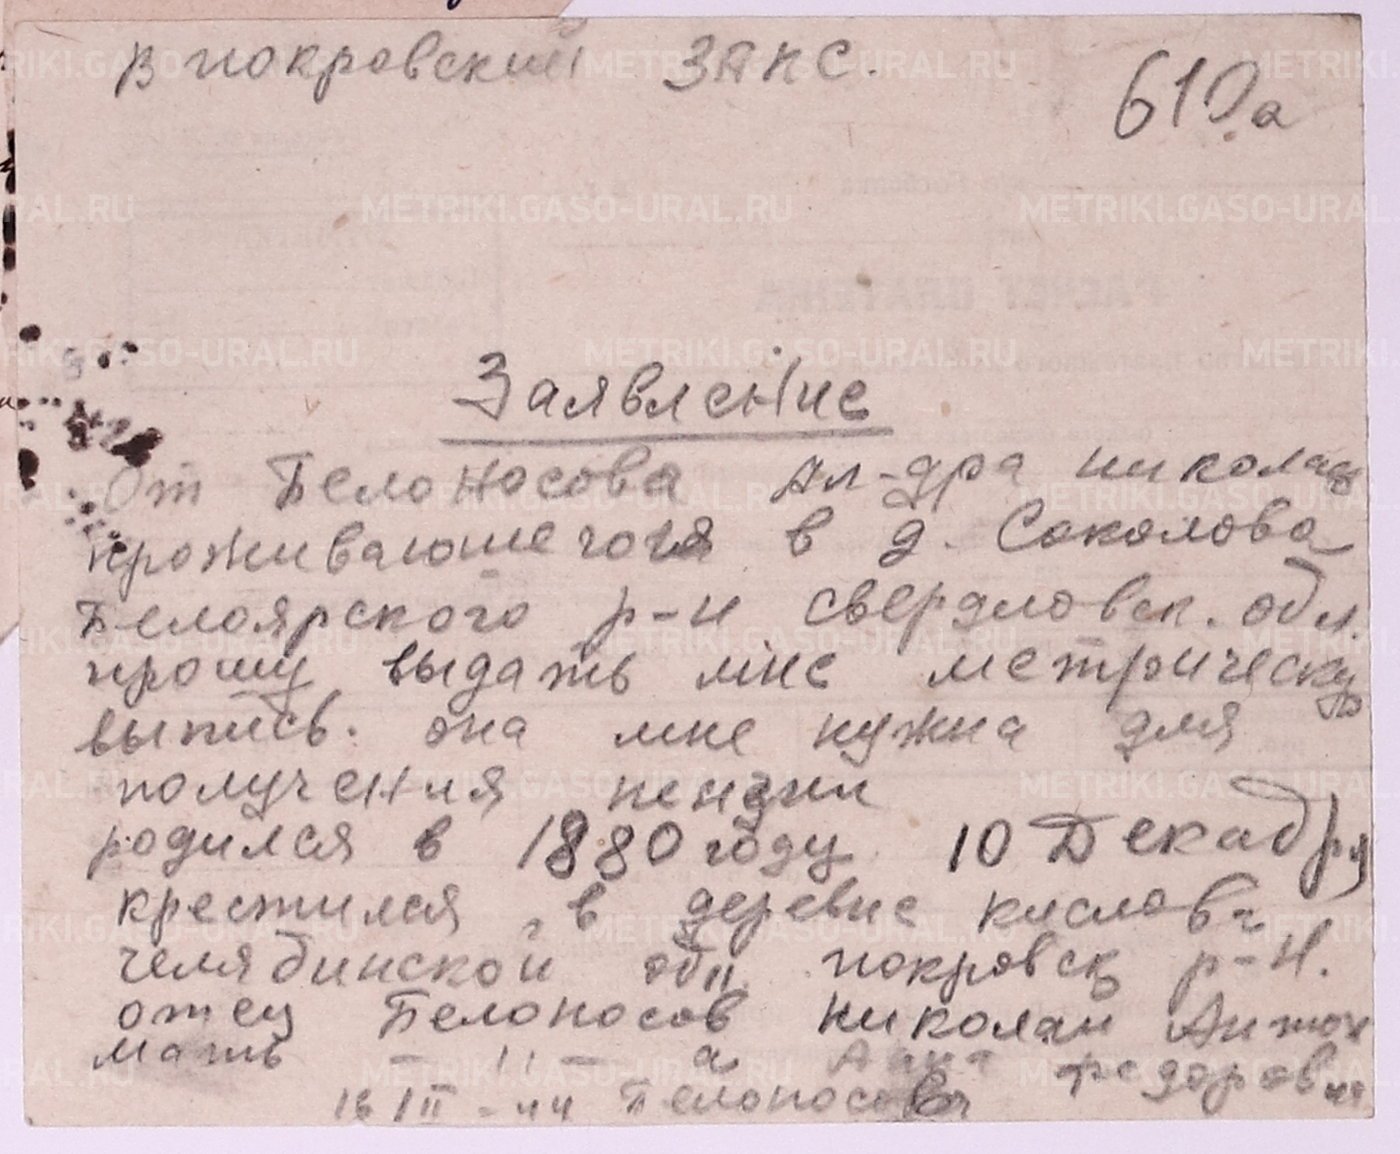 В покровский ЗАКС.
610а
Заявление
От Белоносова Ал-дра николаев
проживающегося в д. Соколова
Белоярского р-н свердловск. обл.
прошу выдать мне метрическую
выпись. она мне нужна для
получения пензии
родился в 1880 году 10 Декабря
крестился в деревне кислова
челябинской обл покровск р-н.
отец Белоносов Николай Антон
мать - 11 - а Анна Федоровна
16 III - 44 Белоносов
METRIKI.GASO-URAL.RU